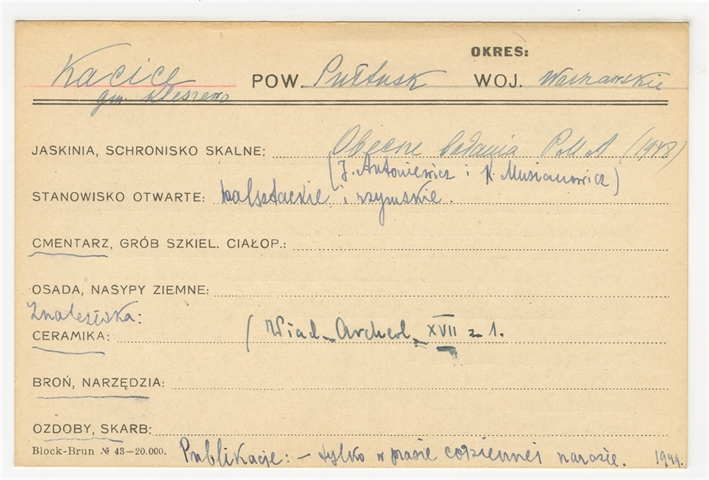 OKRES:
Kacice POW. Pułtusk WOJ. Warszawskie
gm. Kleszewo
JASKINIA, SCHRONISKO SKALNE: Obecne badania P.M.A (1948)
(J. Antoniewicz i K. Musianowicz)
STANOWISKO OTWARTE: halsztackie i rzymskie.
CMENTARZ, GRÓB SZKIEL. CIAŁOP.:
OSADA, NASYPY ZIEMNE:
Znaleziska:
CERAMIKA: (Wiad. Archeol. XVII z 1.
BROŃ, NARZĘDZIA:
OZDOBY, SKARB:
Block-Brun № 43-20.000. Publikacje: - tylko w prasie codziennej narazie. 1949.